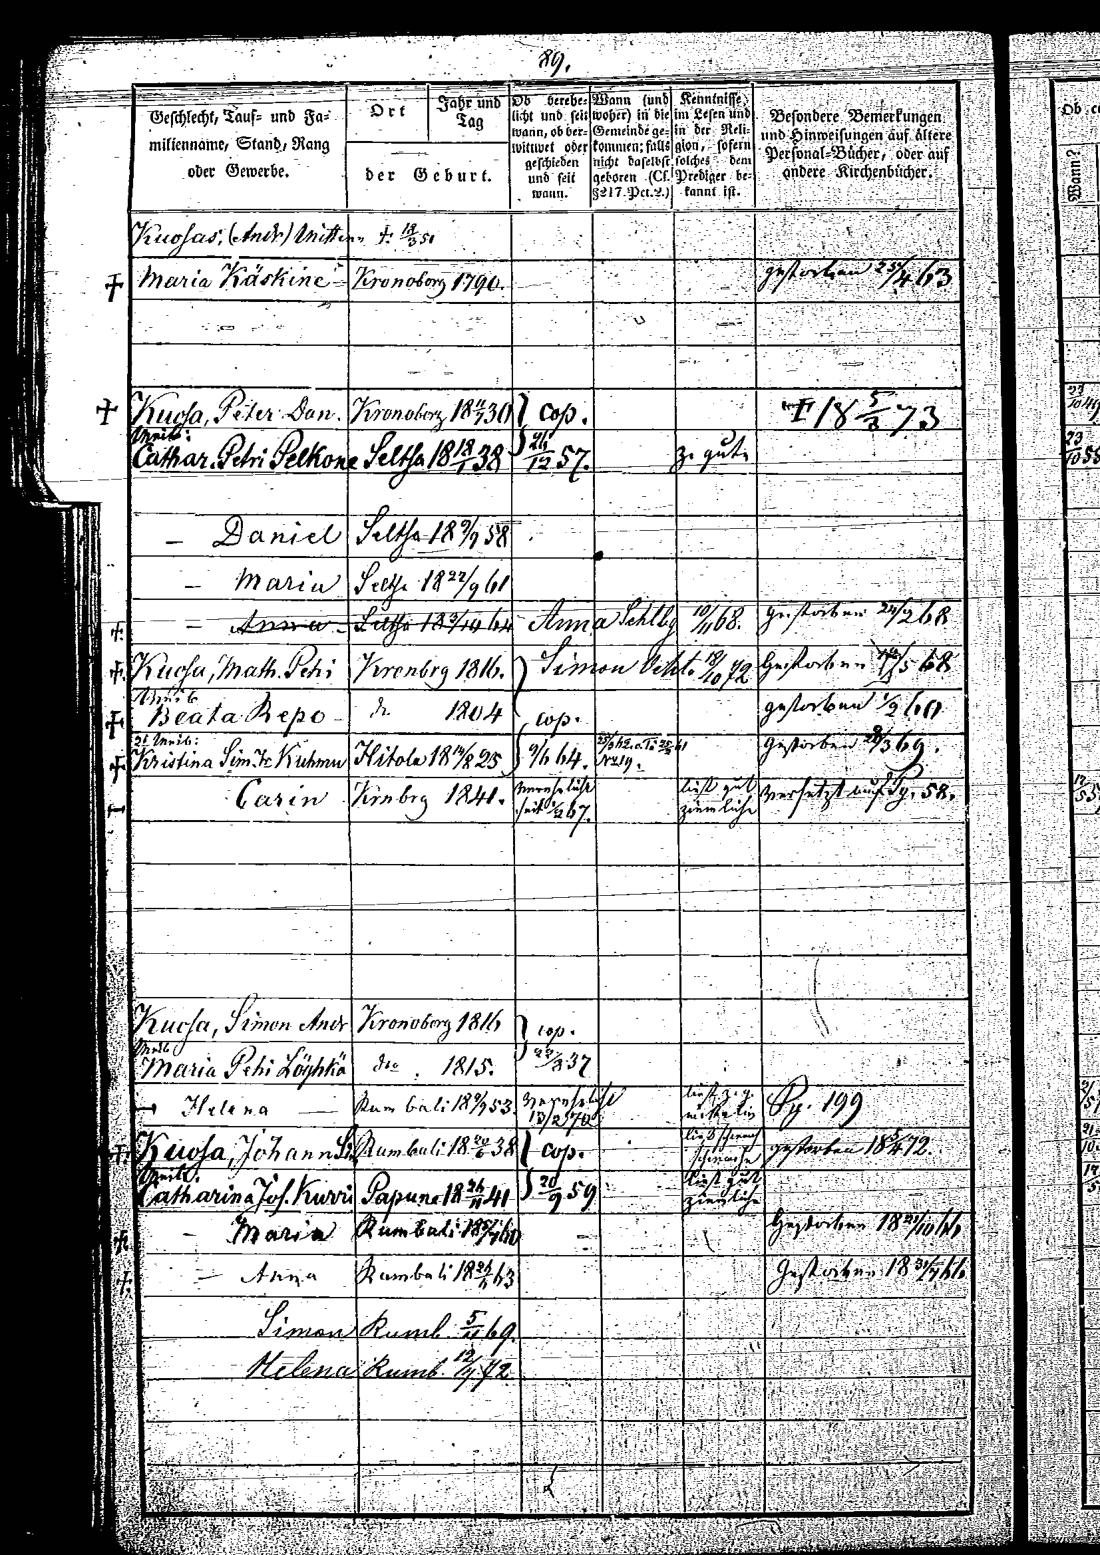 89.
Geschlecht, Tauf= und Fa=
milienname, Stand, Rang
oder Gewerbe.
Ort
Jahr und
Tag
der Geburt.
Ob verehe=
licht und seit
wann, ob ver=
wittwet oder
geschieden
und seit
wann.
Wann (und
woher) in die
Gemeinde ge=
kommen; falls
nicht daselbst
geboren (Cf.
§217. Pct.2.)
Kenntnisse
im Lesen und
in der Reli=
gion, sofern
solches dem
Prediger be=
kannt ist.
Besondere Bemerkungen
und Hinweisungen auf ältere
Personal=Bücher, oder auf
andere Kirchenbücher.
Wann?
Kuosas, (Andr) †. 18/3 51
† Maria Käskine Kronoborg 1790. gestorben 25/4 63
† Kuosa, Peter Dan. Kronoborg 18 11/7 30 cop. † 18 5/3 73
Weib:
Cathar. Petri Pelkone Seltsa 18 18/1 38 26/12 57. z. gut
– Daniel Seltsa 18 9/9 58
– Maria Seltsa 18 22/9 61
†. – Anna Seltsa 64 Anna 10/11 68. gestorben 24/2 68
† Kuosa, Math. Petri Kronbrg 1816. Simon 18/10 72 Gestorben 5 68
Weib
† Beata Repo do 1804 cop. gestorben 1/2 60
2t Weib:
† Kristina Sim. Kuhmu Hitola 18 14/8 25 9/6 64. No 19. Gestorben 28/3 69.
Carin Krnbrg 1841. verehelicht seit 67. liest gut ziemliche versetzt auf Pg. 58.
Kuosa, Simon Andr Kronoborg 1816 cop.
Weib
Maria Petri Löyhkä do. 1815. 37
– Helena Rumbali 18 53. verehelicht 13/2 70 Pg. 199
† Kuosa, Johann Si. Rumbali 18 20/6 38 cop. liest schwach schwache gestorben 18 5/4 72.
Weib.
Catharina Jos. Kurri Papuna 18 26/11 41 20/9 59 liest gut ziemliche
† – Maria Rumbali 60 Gestorben 18 21/10 66
†. – Anna Rumbali 63 Gestorben 18 66
Simon Rumb. 5/11 69.
Helena Rumb. 72